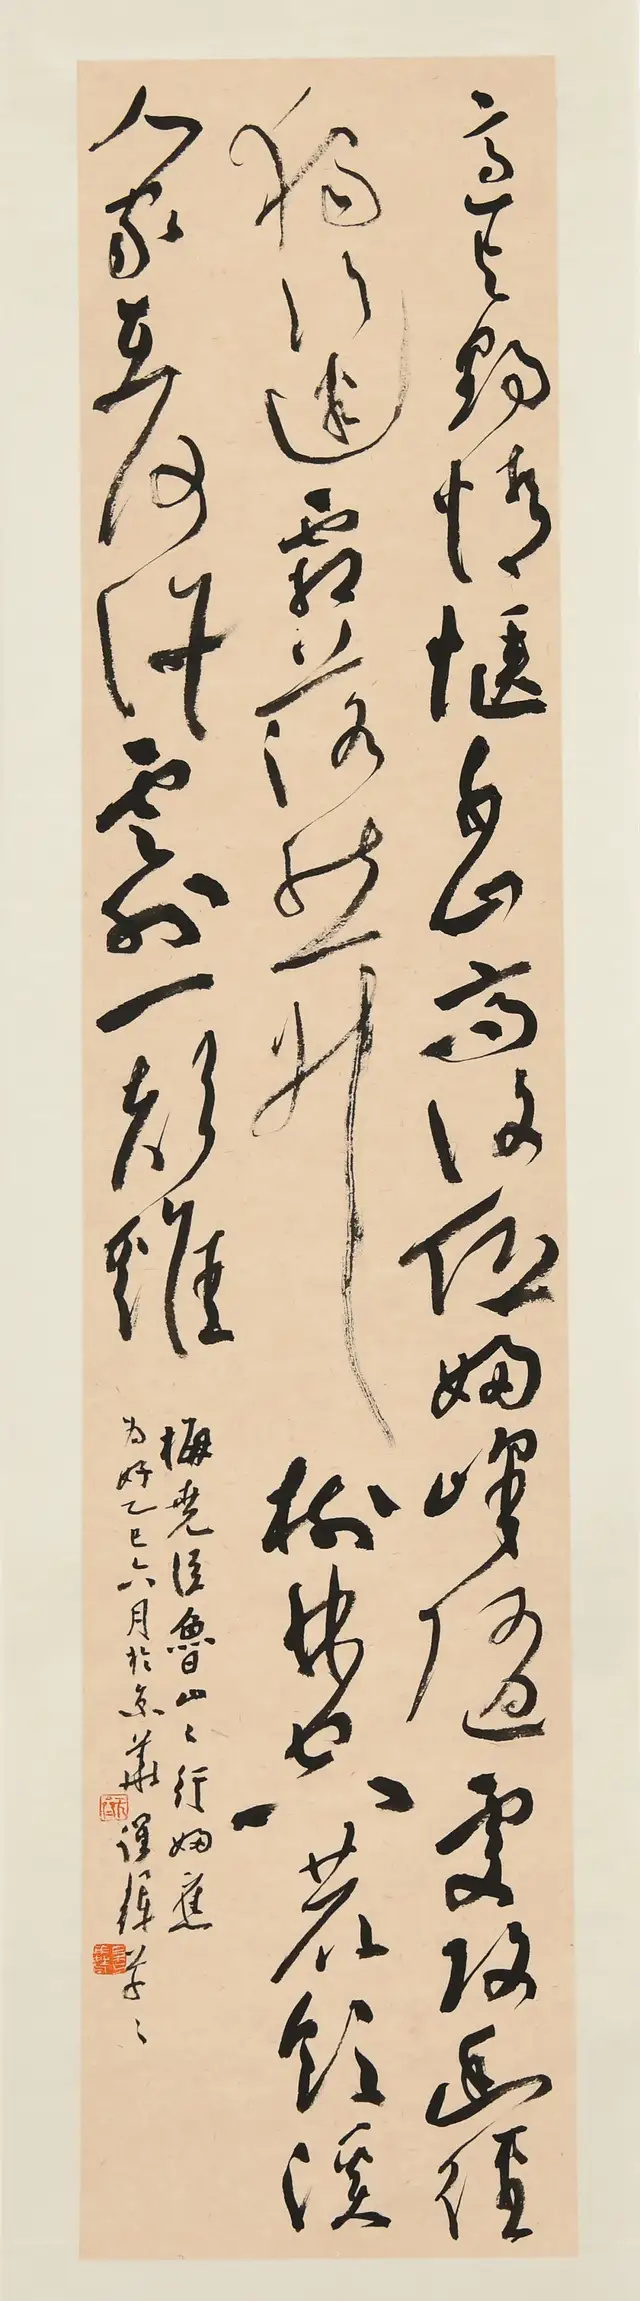 適與野情愜千山高復低好峰隨處改幽徑
獨行迷霜落熊升樹林空鹿飲溪
人家在何許雲外一聲雞
梅堯臣魯山々行
乙巳六月於京華